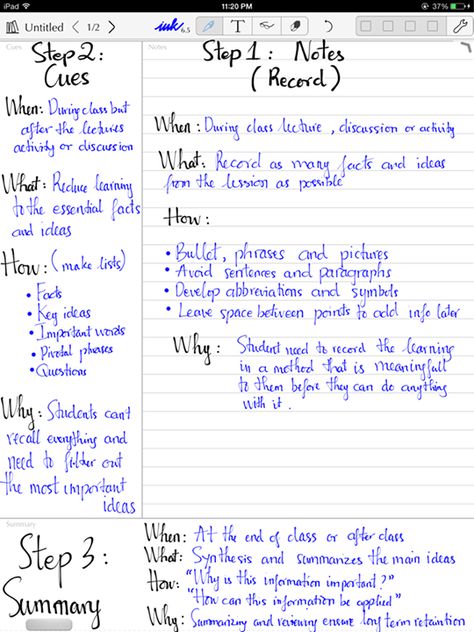 iPad
11:20 PM
37%
Untitled
1/2
ink 6.5
T
Cues
Step 2:
Cues
When: During class but
after the lectures
activity or discussion
What: Reduce learning
to the essential facts
and ideas
How: (make lists)
• Facts
• Key ideas
• Important words
• Pivotal phrases
• Questions
Why: Students can't
recall everything and
need to filter out
the most important
ideas
Notes
Step 1: Notes
(Record)
When: During class lecture, discussion or activity
What: Record as many facts and ideas
from the lession as possible
How:
• Bullet, phrases and pictures
• Avoid sentences and paragraphs
• Develop abbreviations and symbols
• Leave space between points to add info later
Why: Student need to record the learning
in a method that is meaningfull
to them before they can do anything
with it.
Summary
Step 3:
Summary
When: At the end of class or after class
What: Synthesis and summarizes the main ideas
How: "Why is this information important?"
"How can this information be applied"
Why: Summarizing and reviewing ensure long term retention